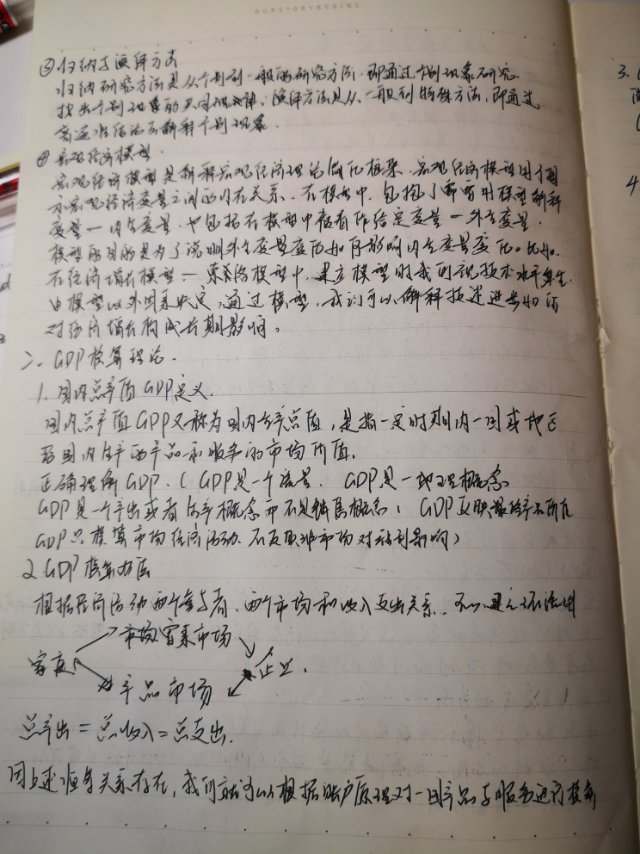 OUR STORY BEGINS
③归纳与演绎方法
归纳研究方法是从个别到一般的研究方法.即通过个别现象研究
找出个别现象的共同规律.演绎方法是从一般到特殊方法,即通过
普遍性结论而解释个别现象.
④宏观经济模型.
宏观经济模型是解释宏观经济理论简化框架.宏观经济模型用于揭
示宏观经济变量之间的内在关系.在模型中,包括了需要用模型解释
变量—内生变量.也包括在模型中被看作给定变量—外生变量.
模型的目的是为了说明外生变量变化如何影响内生变量变化.比如.
在经济增长模型—索洛模型中,建立模型时我们视技术水平外生.
由模型以外因素决定,通过模型,我们可以解释技术进步如何
对经济增长构成长期影响。
二、GDP核算理论.
1.国内总产值GDP定义.
国内总产值GDP又称为国内生产总值,是指一定时期内一国或地区
范围内生产的产品和服务的市场价值.
正确理解GDP.(GDP是一个流量. GDP是一地理概念
GDP是一个产出或者生产概念而不是销售概念; GDP反映最终产品所在
GDP只核算市场经济活动.不反映非市场对福利影响)
2.GDP核算方法
根据经济活动两个参与者、两个市场和收入支出关系.
市场要素市场
家庭 企业.
产品市场
总产出=总收入=总支出.
因上述恒等关系存在,我们就可以根据账户原理对一国产品与服务进行核算
3.
4